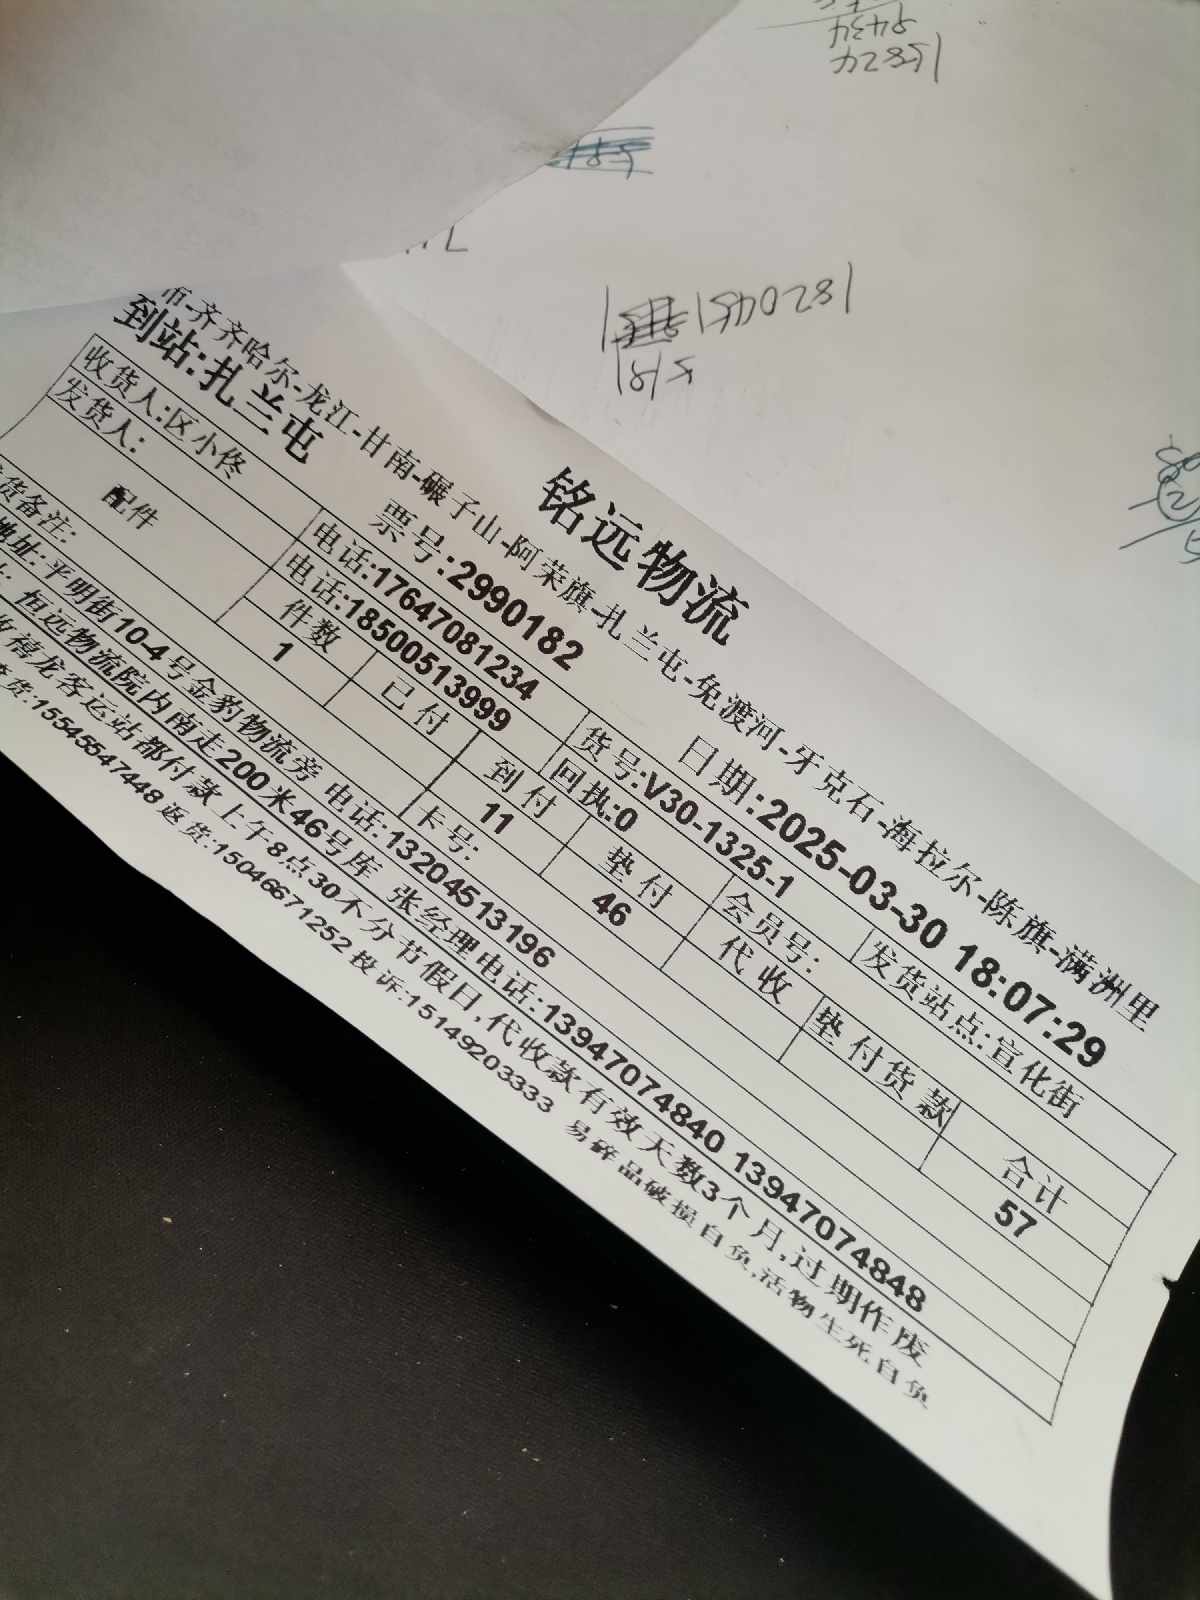 铭远物流
市-齐齐哈尔-龙江-甘南-碾子山-阿荣旗-扎兰屯-免渡河-牙克石-海拉尔-陈旗-满洲里
到站:扎兰屯 票号:2990182 日期:2025-03-30 18:07:29
收货人:区小佟 电话:17647081234 货号:V30-1325-1 发货站点:宣化街
发货人: 电话:18500513999 回执:0 会员号:
件数 已付 到付 垫付 代收 垫付货款 合计
配件 1 11 46 57
货备注: 卡号:
地址:平明街10-4号金豹物流旁 电话:13204513196
恒远物流院内南走200米46号库 张经理电话:13947074840 13947074848
禧龙客运站都付款上午8点30不分节假日,代收款有效天数3个月,过期作废
货:15545547448 返货:15046671252 投诉:15149203333 易碎品破损自负,活物生死自负